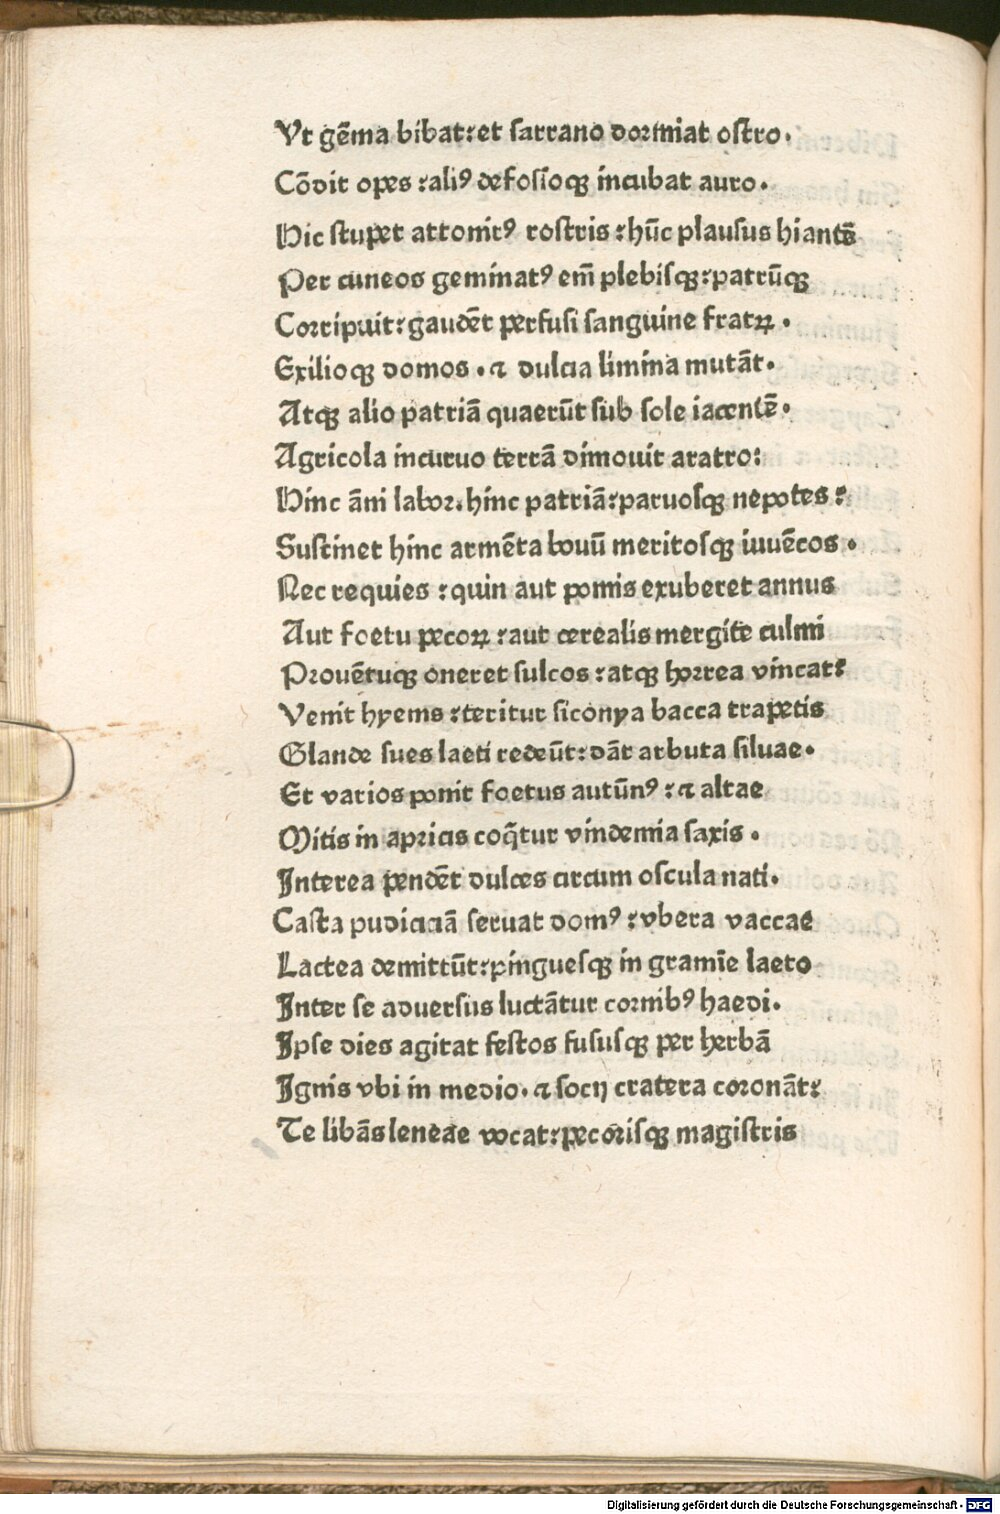 Vt gēma bibat: et sarrano dormiat ostro.
Cōdit opes: aliꝰ defossoqꝫ incubat auro.
Hic stupet attonitꝰ rostris: hūc plausus hiantē
Per cuneos geminatꝰ em̄ plebisqꝫ: patrūqꝫ
Corripuit: gaudēt perfusi sanguine fratꝝ.
Exilioqꝫ domos. ⁊ dulcia limina mutāt.
Atqꝫ alio patriā quaerūt sub sole iacentē.
Agricola incuruo terrā dimouit aratro:
Hinc āni labor. hinc patriā: paruosqꝫ nepotes:
Sustinet hinc armēta bouū meritosqꝫ iuuēcos.
Nec requies: quin aut pomis exuberet annus
Aut foetu pecoꝝ: aut cerealis mergite culmi
Prouētuqꝫ oneret sulcos: atqꝫ horrea vincat:
Venit hyems: teritur siconya bacca trapetis
Glande sues laeti redeūt: dāt arbuta siluae.
Et varios ponit foetus autūnꝰ: ⁊ altae
Mitis in apricis coq̄tur vindemia saxis.
Interea pendēt dulces circum oscula nati.
Casta pudiciciā seruat domꝰ: vbera vaccae
Lactea demittūt: pinguesqꝫ in gramīe laeto
Inter se aduersus luctātur cornibꝰ haedi.
Ipse dies agitat festos fususqꝫ per herbā
Ignis vbi in medio. ⁊ socij cratera coronāt:
Te libās leneae vocat: pecorisqꝫ magistris
Digitalisierung gefördert durch die Deutsche Forschungsgemeinschaft - DFG